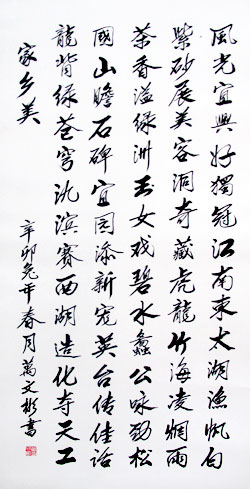 風光宜興好獨冠江南東太湖漁帆白
紫砂展美容洞奇藏虎龍竹海凌烟雨
茶香溢绿洲玉女戏碧水蠡公咏勁松
國山瞻石碑宜园添新宠英台传佳话
龍背绿苍穹氿滨赛西湖造化夺天工
家乡美
辛卯兔年春月萬文彬書